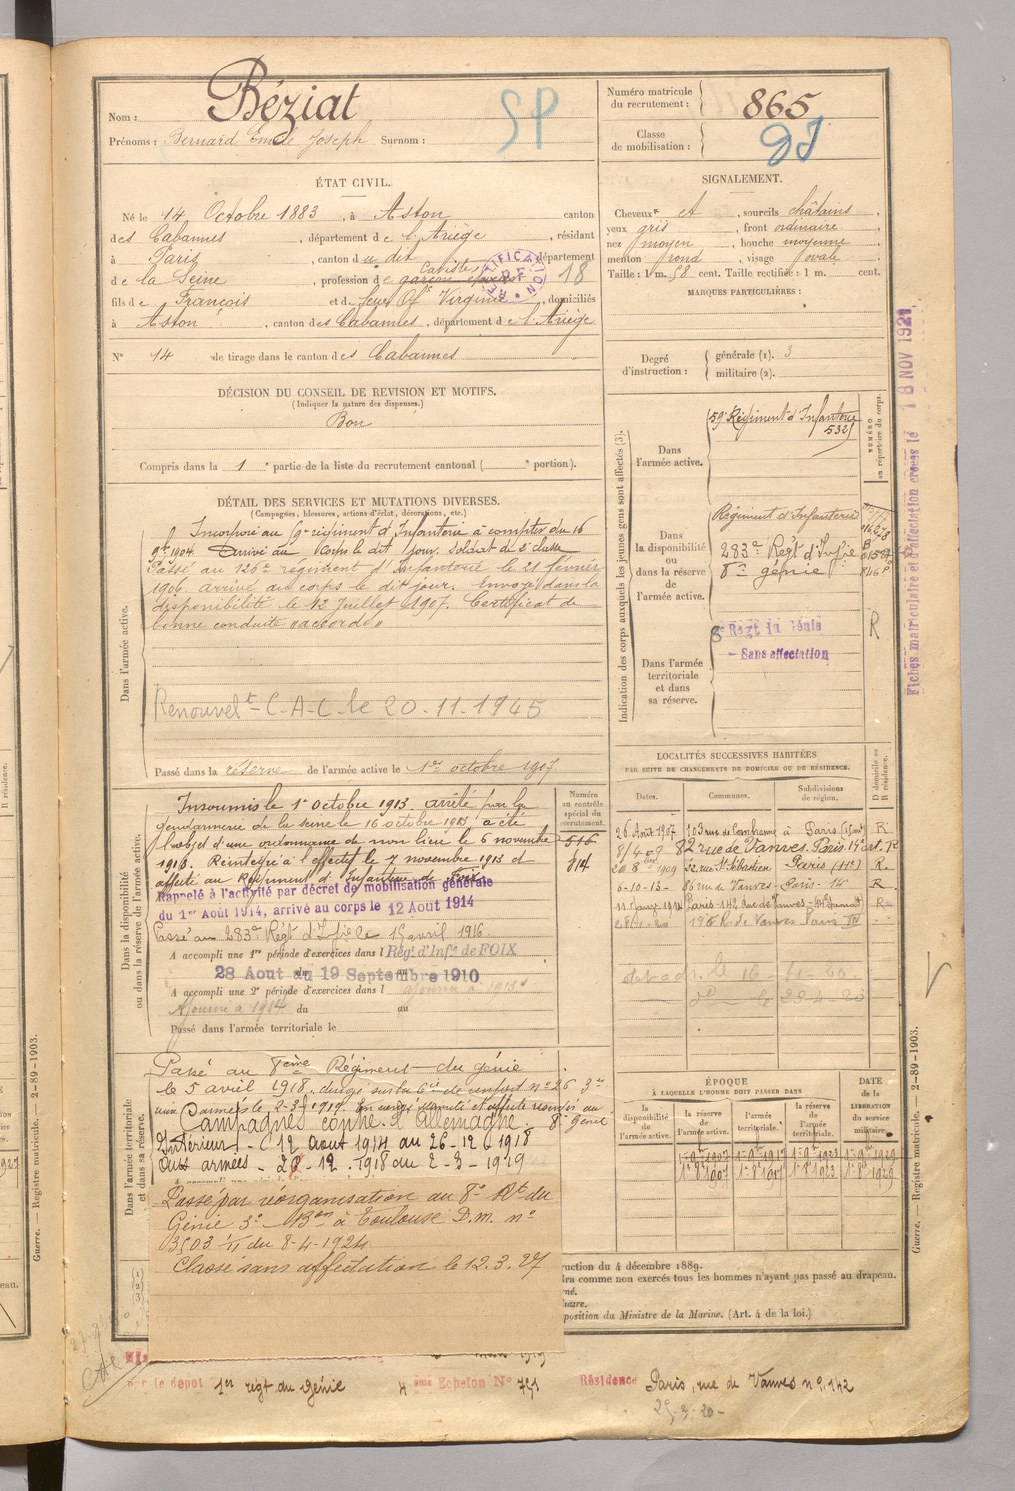 Nom : Béziat
Prénoms : Bernard Emile Joseph Surnom :
SP
Numéro matricule du recrutement : 865
Classe de mobilisation :
ÉTAT CIVIL.
Né le 14 Octobre 1883, à Aston canton
des Cabannes, département de l'Ariège, résidant
à Paris, canton du dit, département
de la Seine, profession de garçon 18
Cariste
RECTIFICATION
fils de François et de feue Virginie, domiciliés
à Aston, canton des Cabannes, département de l'Ariège
N° 14 de tirage dans le canton des Cabannes
SIGNALEMENT.
Cheveux et, sourcils châtains,
yeux gris, front ordinaire,
nez moyen, bouche moyenne
menton rond, visage ovale.
Taille : 1 m. 58 cent. Taille rectifiée : 1 m. cent.
MARQUES PARTICULIÈRES :
Degré d'instruction : générale (1). 3
militaire (2).
DÉCISION DU CONSEIL DE REVISION ET MOTIFS.
(Indiquer la nature des dispenses.)
Bon
Compris dans la 1e partie de la liste du recrutement cantonal ( e portion).
DÉTAIL DES SERVICES ET MUTATIONS DIVERSES.
(Campagnes, blessures, actions d'éclat, décorations, etc.)
Dans l'armée active.
Incorporé au 9e régiment d'Infanterie à compter du 16
9bre 1904. Arrivé au Corps le dit jour. Soldat de 2e classe
Passé au 126e régiment d'Infanterie le 21 février
1906. Arrivé au corps le dit jour. Envoyé dans la
disponibilité le 12 Juillet 1907. Certificat de
bonne conduite "accordé"
Renouvelt C-A-C- le 20-11-1945
Passé dans la réserve de l'armée active le 1er octobre 1907.
Dans la disponibilité ou dans la réserve de l'armée active.
Insoumis le 1er Octobre 1913. arrêté par la
gendarmerie de la seine le 16 octobre 1913 a été
l'objet d'une ordonnance de non lieu le 6 novembre
1913. Réintégré à l'effectif le 7 novembre 1913 et
affecté au Régiment d'Infanterie de Foix
Rappelé à l'activité par décret de mobilisation générale
du 1er Août 1914, arrivé au corps le 12 Aout 1914
Passé au 283e Régt d'Infie le 15 avril 1916.
A accompli une 1re période d'exercices dans l Régt d'Infie de FOIX
28 Aout au 19 Septembre 1910
A accompli une 2e période d'exercices dans l ajourné à 1913
Ajourné à 1914 du au
Passé dans l'armée territoriale le
Numéro au contrôle spécial du recrutement.
516
814
Dans l'armée territoriale et dans sa réserve.
Passé au 8ème Régiment du génie
le 5 avril 1918. dirigé sur la Cie de renfort n° 26 3
aux armées le 2-3-1919. En congé illimité et affecté réserve au
8e génie
Campagnes contre l'Allemagne.
Intérieur - 12 aout 1914 au 26-12-1918
Aux armées - 12-1918 au 2-3-1919
Passé par réorganisation au 8e Rt du
Génie 3e Bon à Toulouse D.m. n°
3503 /11 du 8-4-1924
Classé sans affectation le 12.3.27
Indication des corps auxquels les jeunes gens sont affectés (3).
NUMÉRO au répertoire du corps.
Dans l'armée active.
59e Régiment d'Infanterie
5321
Dans la disponibilité ou dans la réserve de l'armée active.
Régiment d'Infanterie
283e Régt d'Infie
8e génie
Dans l'armée territoriale et dans sa réserve.
8e Régt du Génie
- Sans affectation
R
Fiches matriculaire et d'affectation créées le 18 NOV 1921.
LOCALITÉS SUCCESSIVES HABITÉES
PAR SUITE DE CHANGEMENTS DE DOMICILE OU DE RÉSIDENCE.
Dates. Communes. Subdivisions de région. D domicile ou R résidence.
26 Août 1907 103 rue à Paris R
8/4 09 82 rue de Vanves. Paris 14e
1909 52 rue St Sébastien Paris (11e) R.
6-10-13- 86 rue de Vanves - Paris - 14e R
Paris - 142 rue de Vanves R
196 R. de Vanves Paris XIV
le 16-11-20
do le 28-4-23
ÉPOQUE
À LAQUELLE L'HOMME DOIT PASSER DANS
la disponibilité de l'armée active. la réserve de l'armée active. l'armée territoriale. la réserve de l'armée territoriale. DATE de la LIBÉRATION DU SERVICE militaire.
1er 8e 1907 1er 8e 1917 1er 8e 1923 1er 8e 1929
ruction du 4 décembre 1889.
dra comme non exercés tous les hommes n'ayant pas passé au drapeau.
mé.
liaire.
position du Ministre de la Marine. (Art. 4 de la loi.)
Guerre. — Registre matricule. — 2-89-1903.
par le depot 1er régt du Génie 4 ème Echelon N° 751 Résidence Paris, rue de Vanves n° 142
25-3-20-